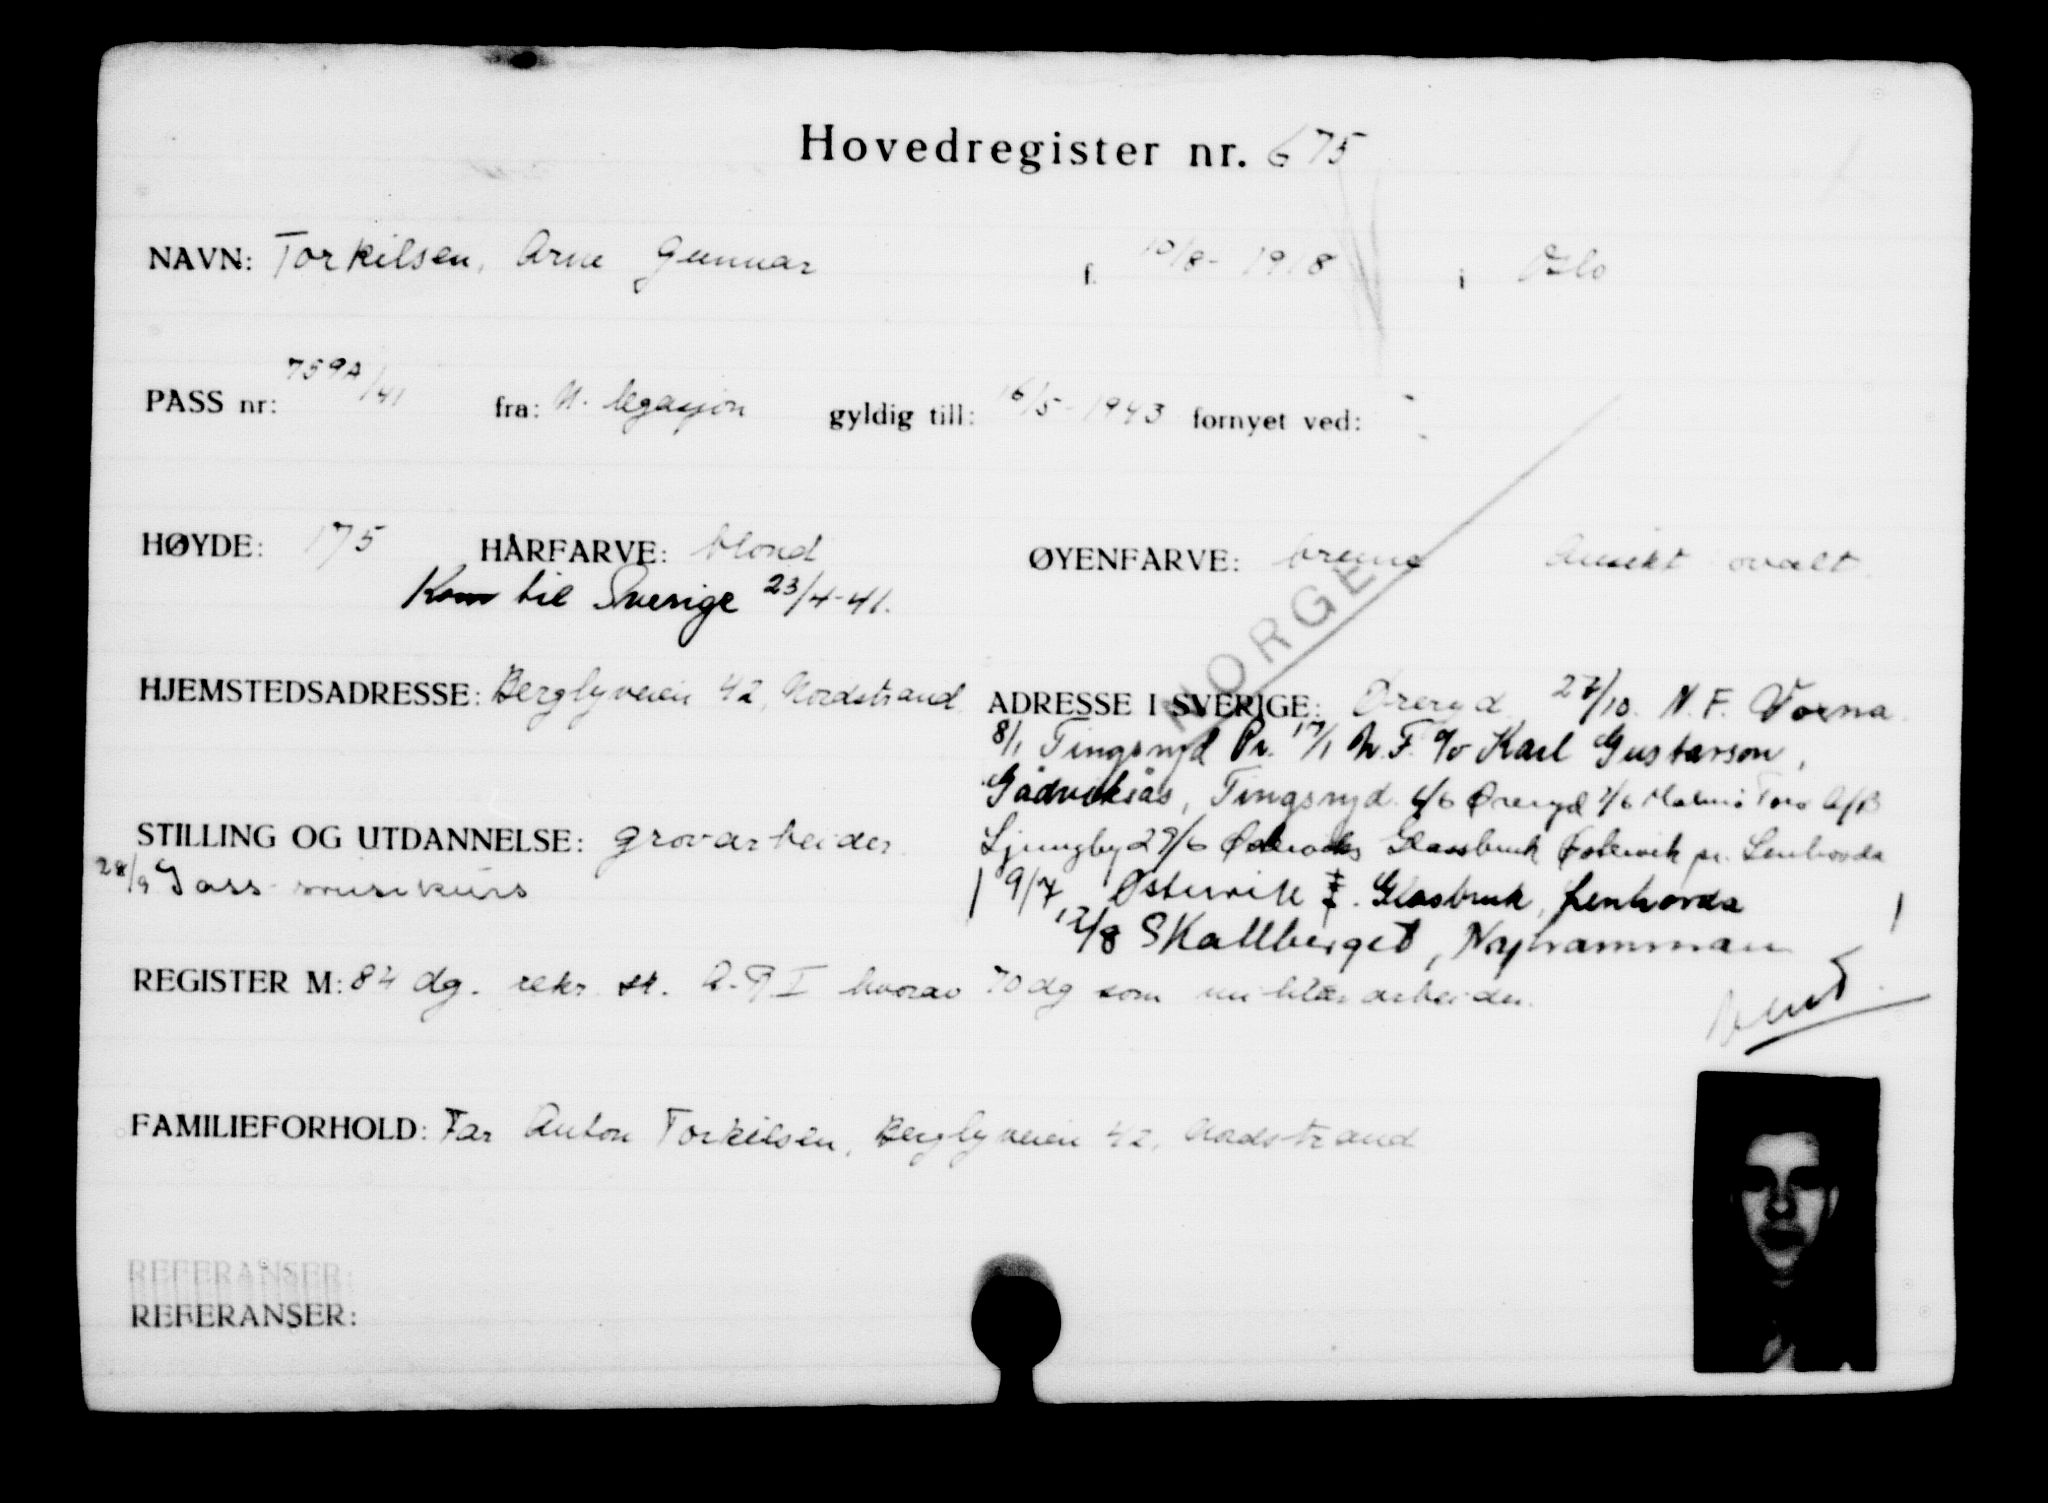 Hovedregister nr. 675
NAVN: Torkilsen, Arne Gunnar f. 10/8- 1918 i Oslo
PASS nr: 759A/41 fra: N. legasjon gyldig till: 16/5-1943 fornyet ved:
HØYDE: 175 HÅRFARVE: blond ØYENFARVE: brune Ansikt ovalt.
Kom til Sverige 23/4-41.
NORGE
HJEMSTEDSADRESSE: Berglyveien 42, Nordstrand ADRESSE I SVERIGE: Øreryd 27/10. N. F. Värna
8/1 Tingsryd Pr. 17/1 N.F. c/o Karl Gustavson,
Gådviksås, Tingsryd. 6/6 Øreryd 7/6 Malmö Torv A/B
STILLING OG UTDANNELSE: grovarbeider. Ljungby 27/6 Glassbruk pr. Lenhovda
28/9 Jass-musikurs 9/7 Østervik Glasbruk, Lenhovda
12/8 Skallberget, Nyhamman
REGISTER M: 84 dg. rekr. st. hvorav 70 dg som militærarbeider.
FAMILIEFORHOLD: Far Anton Torkilsen, Berglyveien 42, Nordstrand
REFERANSER:
REFERANSER: